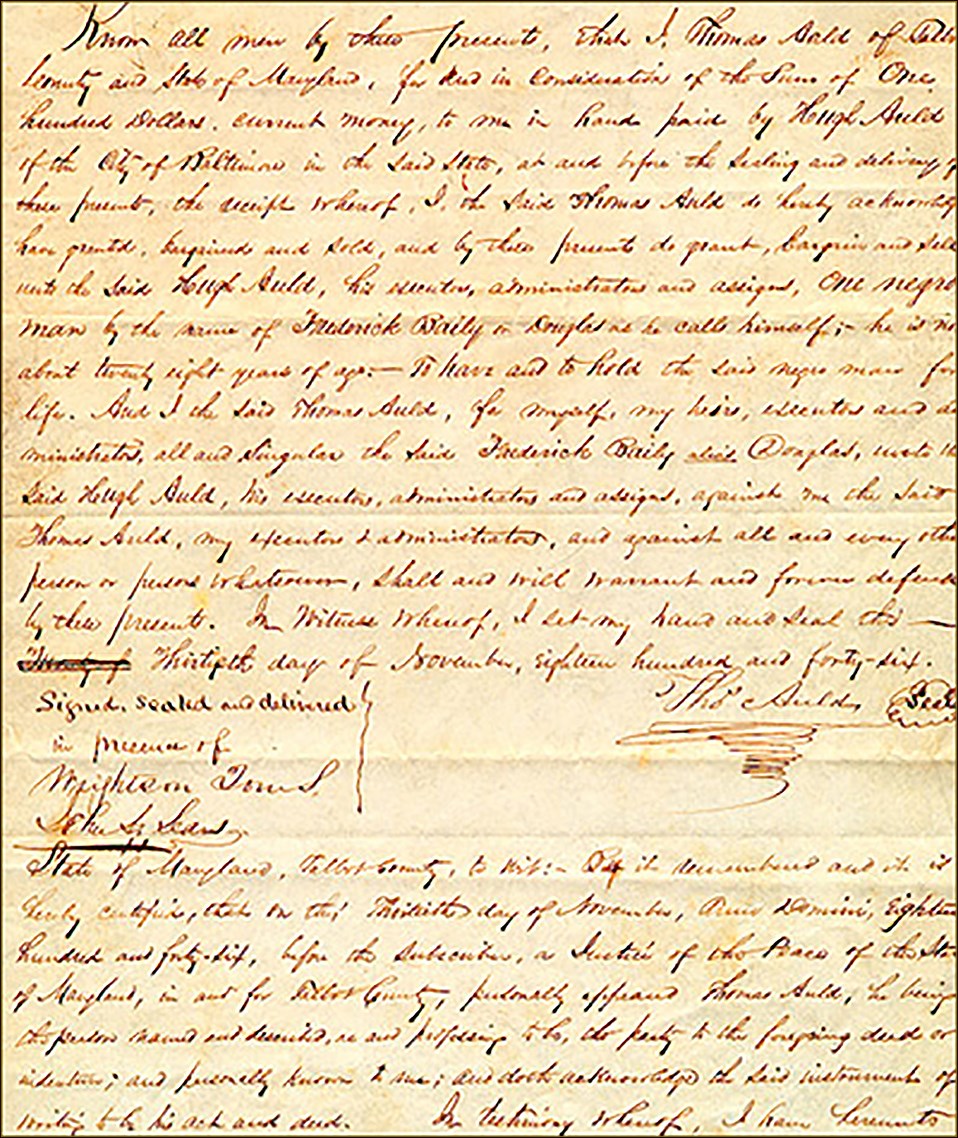 Know all men by these presents, that I, Thomas Auld of Talb
County and State of Maryland, for and in consideration of the Sum of One
hundred Dollars, current money, to me in hand paid by Hugh Auld
of the City of Baltimore in the said State, at and before the sealing and delivery of
these presents, the receipt whereof, I, the said Thomas Auld do hereby acknowledg
have granted, bargained and sold, and by these presents do grant, bargain and sell
unto the said Hugh Auld, his executors, administrators and assigns, One negro
man by the name of Frederick Baily or Douglas as he calls himself;- he is no
about twenty eight years of age:- To have and to hold the said negro man for
life. And I the said Thomas Auld, for myself, my heirs, executors and ad
ministrators, all and singular the said Frederick Baily alias Douglas, unto th
said Hugh Auld, his executors, administrators and assigns, against me the said
Thomas Auld, my executors & administrators, and against all and every othe
person or persons whatsoever, shall and will warrant and forever defend
by these presents. In Witness whereof, I set my hand and seal this —
Thirtieth day of November, eighteen hundred and forty-six.
Signed, sealed and delivered
Thos Auld Seal
in presence of
Wrightson
State of Maryland, Talbot County, to wit:- Be it remembered and it is
hereby certified, that on this Thirtieth day of November, Anno Domini, eighteen
hundred and forty-six, before the subscriber, a Justice of the Peace of the Sta
of Maryland, in and for Talbot County, personally appeared Thomas Auld, he being
the person named and described, as and professing to be, the party to the foregoing deed or
indenture; and personally known to me; and doth acknowledge the said instrument of
writing to be his act and deed. In testimony whereof, I have hereunto